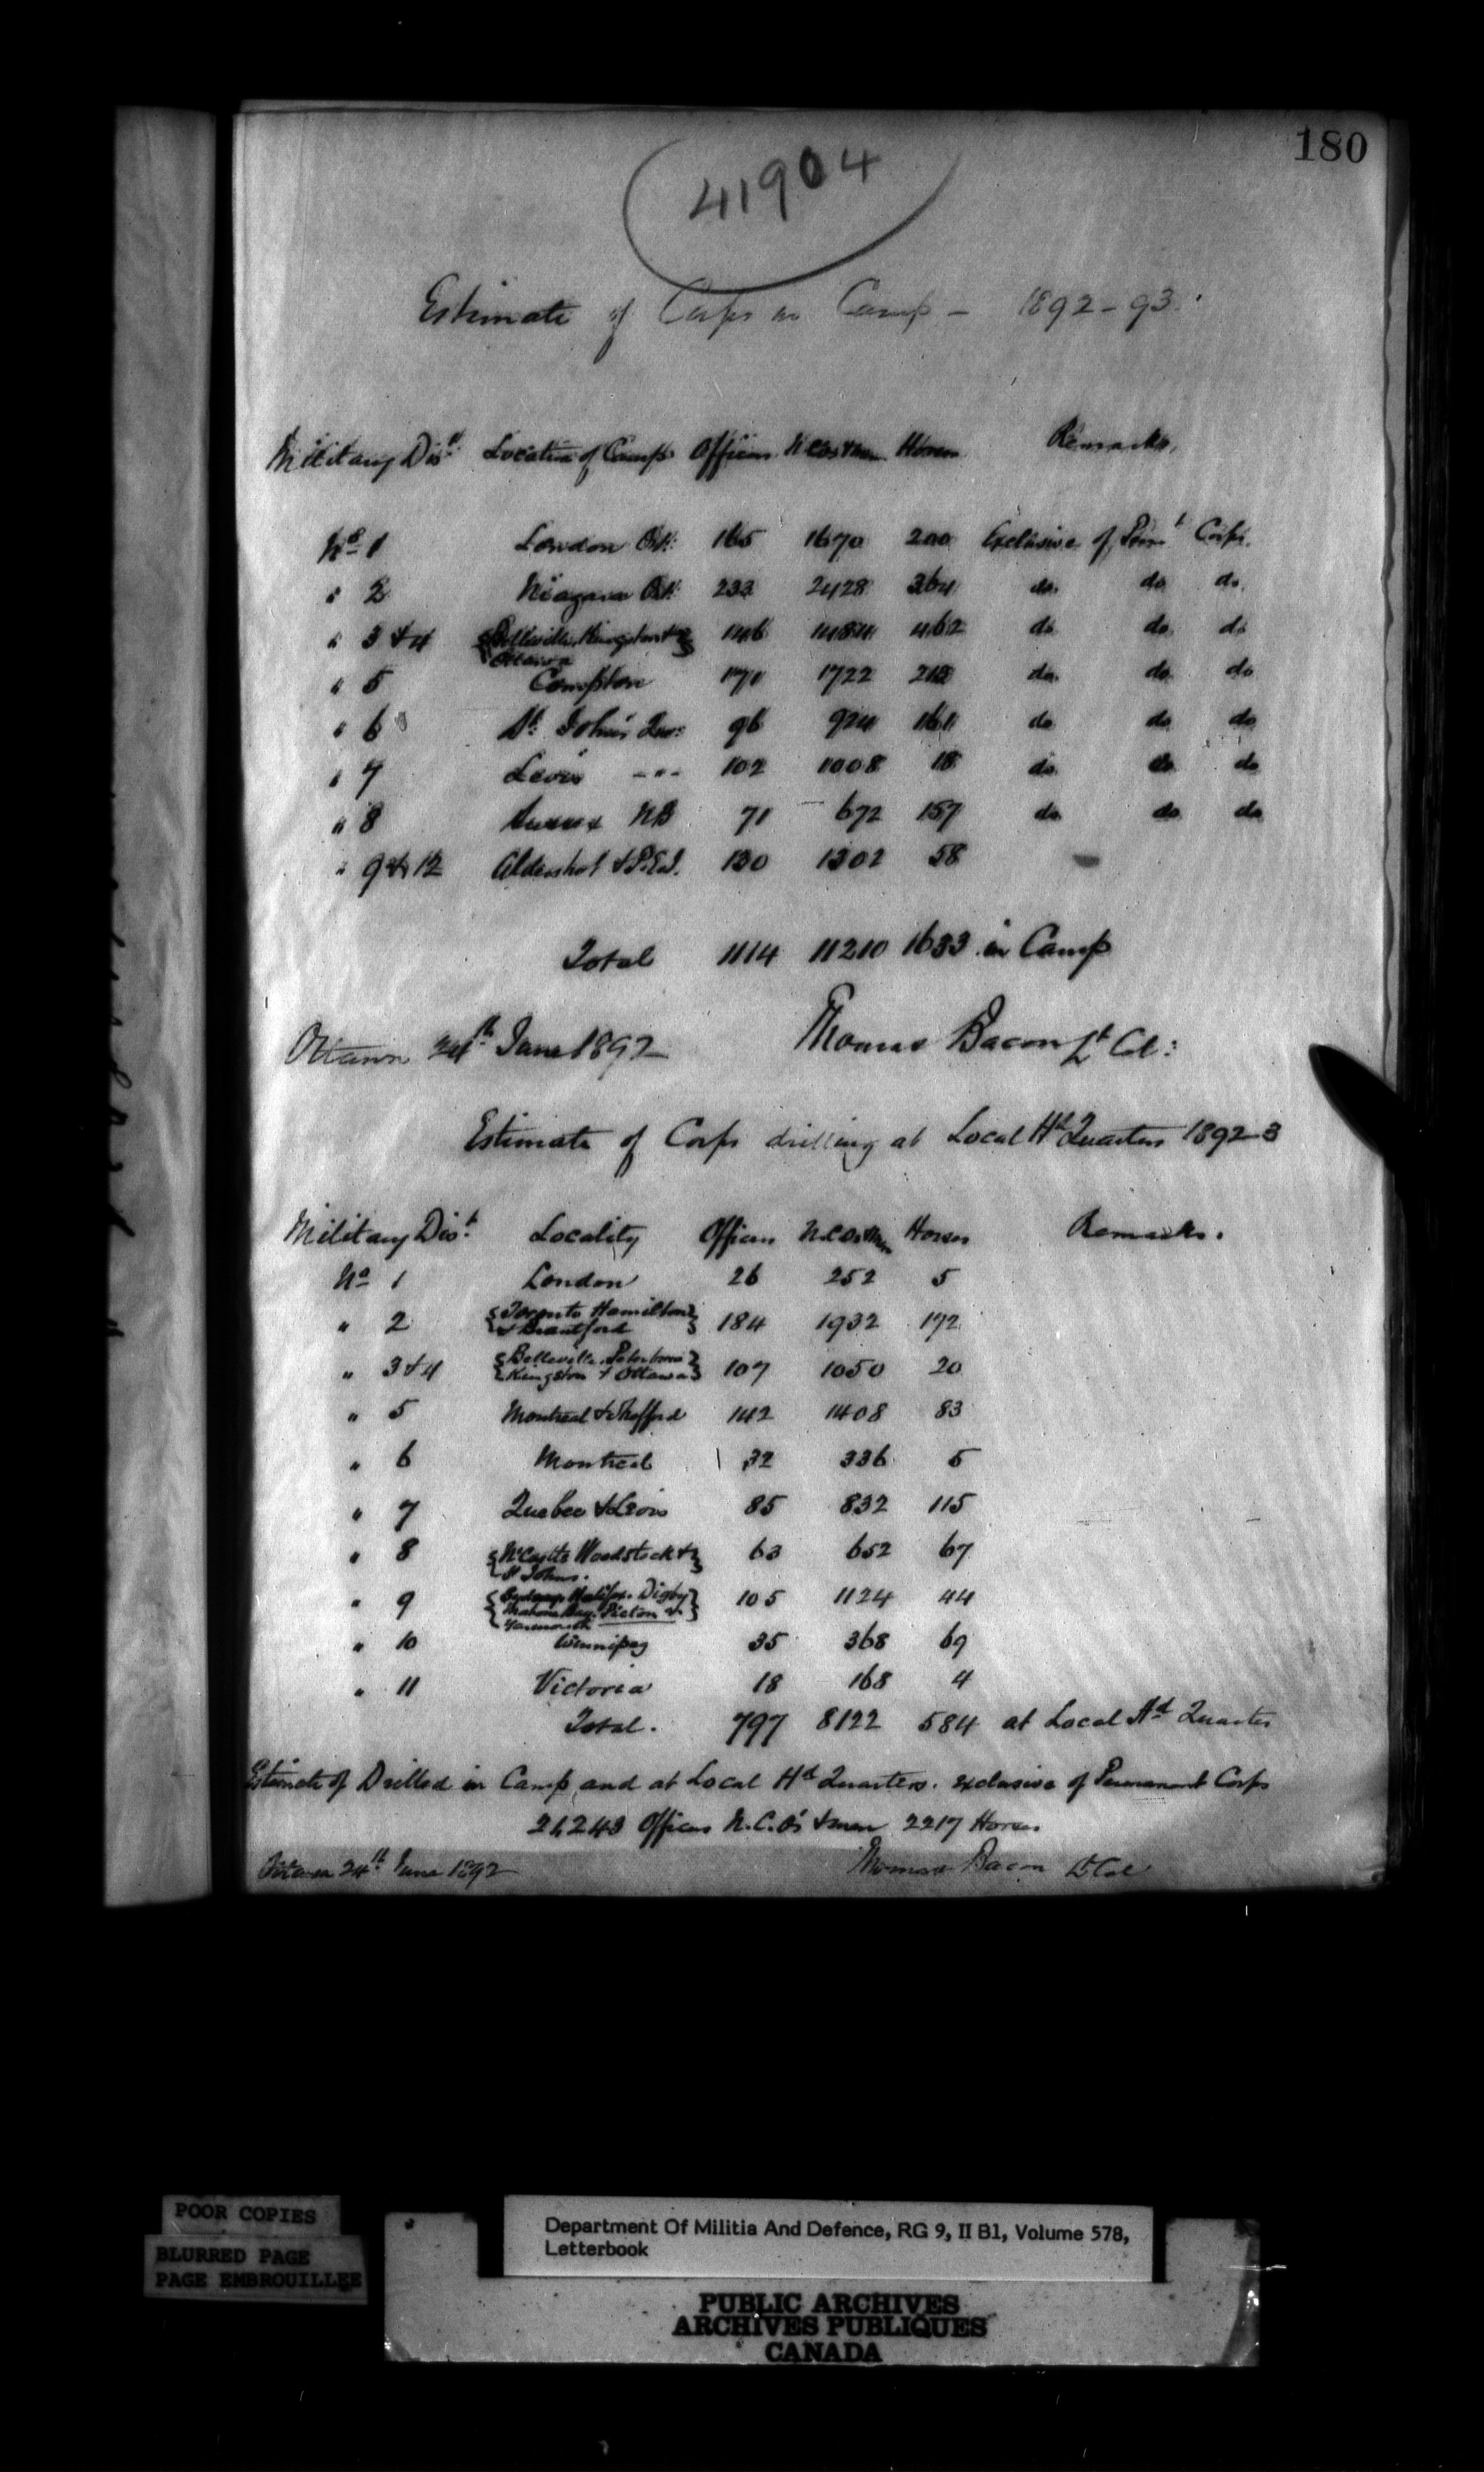 180
41904
Estimate of Corps in Camp - 1892-93.
Military Dist. Location of Camp Officers N.C.Os & Men Horses Remarks.
No 1 London Ont: 165 1670 200 Exclusive of Permt Corps.
" 2 Niagara Ont: 233 2428 364 do. do do.
" 3 & 4 {Belleville, Kingston &} 146 1484 462 do do. do
Ottawa
" 5 Compton 171 1722 do. do. do
" 6 St: John's Que: 96 924 161 do do. do
" 7 Levis - " - 102 1008 18 do. do do
" 8 Sussex NB 71 672 157 do. do. do
" 9 & 12 Aldershot & P.E.I. 130 1302 58
Total 1114 11210 1633 in Camp
Ottawa 24th June 1892 Thomas Bacon Lt Col:
Estimate of Corps drilling at Local Hd Quarters 1892-3
Military Dist. Locality Officers N.C.Os & Men Horses Remarks.
No 1 London 26 252 5
" 2 {Toronto Hamilton} 184 1932 172
& Brantford
" 3 & 4 {Belleville, Peterboro} 107 1050 20
{Kingston & Ottawa}
" 5 Montreal & Shefford 142 1408 83
" 6 Montreal 32 336 5
" 7 Quebec & Levis 85 832 115
" 8 {N'Castle Woodstock &} 63 652 67
St Johns.
" 9 {Sydney, Halifax. Digby} 105 1124 44
Mahone Bay. Pictou &
Yarmouth
" 10 Winnipeg 35 368 69
" 11 Victoria 18 168 4
Total. 797 8122 584 at Local Hd Quarters
Estimate of Drilled in Camp and at Local Hd Quarters. exclusive of Permanent Corps
21,243 Officers N.C.O's & men 2217 Horses.
Ottawa 24th June 1892 Thomas Bacon Lt Col
POOR COPIES
BLURRED PAGE
PAGE EMBROUILLEE
Department Of Militia And Defence, RG 9, II B1, Volume 578,
Letterbook
PUBLIC ARCHIVES
ARCHIVES PUBLIQUES
CANADA